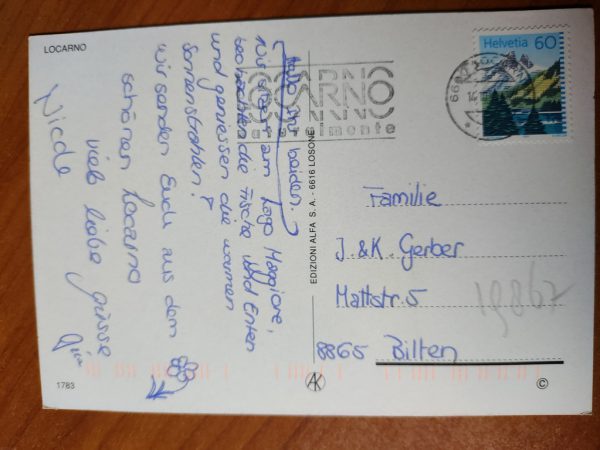 LOCARNO
Hallo Ihr beiden.
Wir sitzen am Lago Maggiore,
beobachten die Fische und Enten
und geniessen die warmen
Sonnenstrahlen!
Wir senden Euch aus dem
schönen Locarno
viele liebe Grüsse
Nicole
1783
EDIZIONI ALFA S. A. - 6616 LOSONE
AK
LOCARNO
LOCARNO
LOCARNO
6600 LOCARNO
Helvetia 60
Familie
J. & K. Gerber
Mattstr. 5
8865 Bilten
19867
©